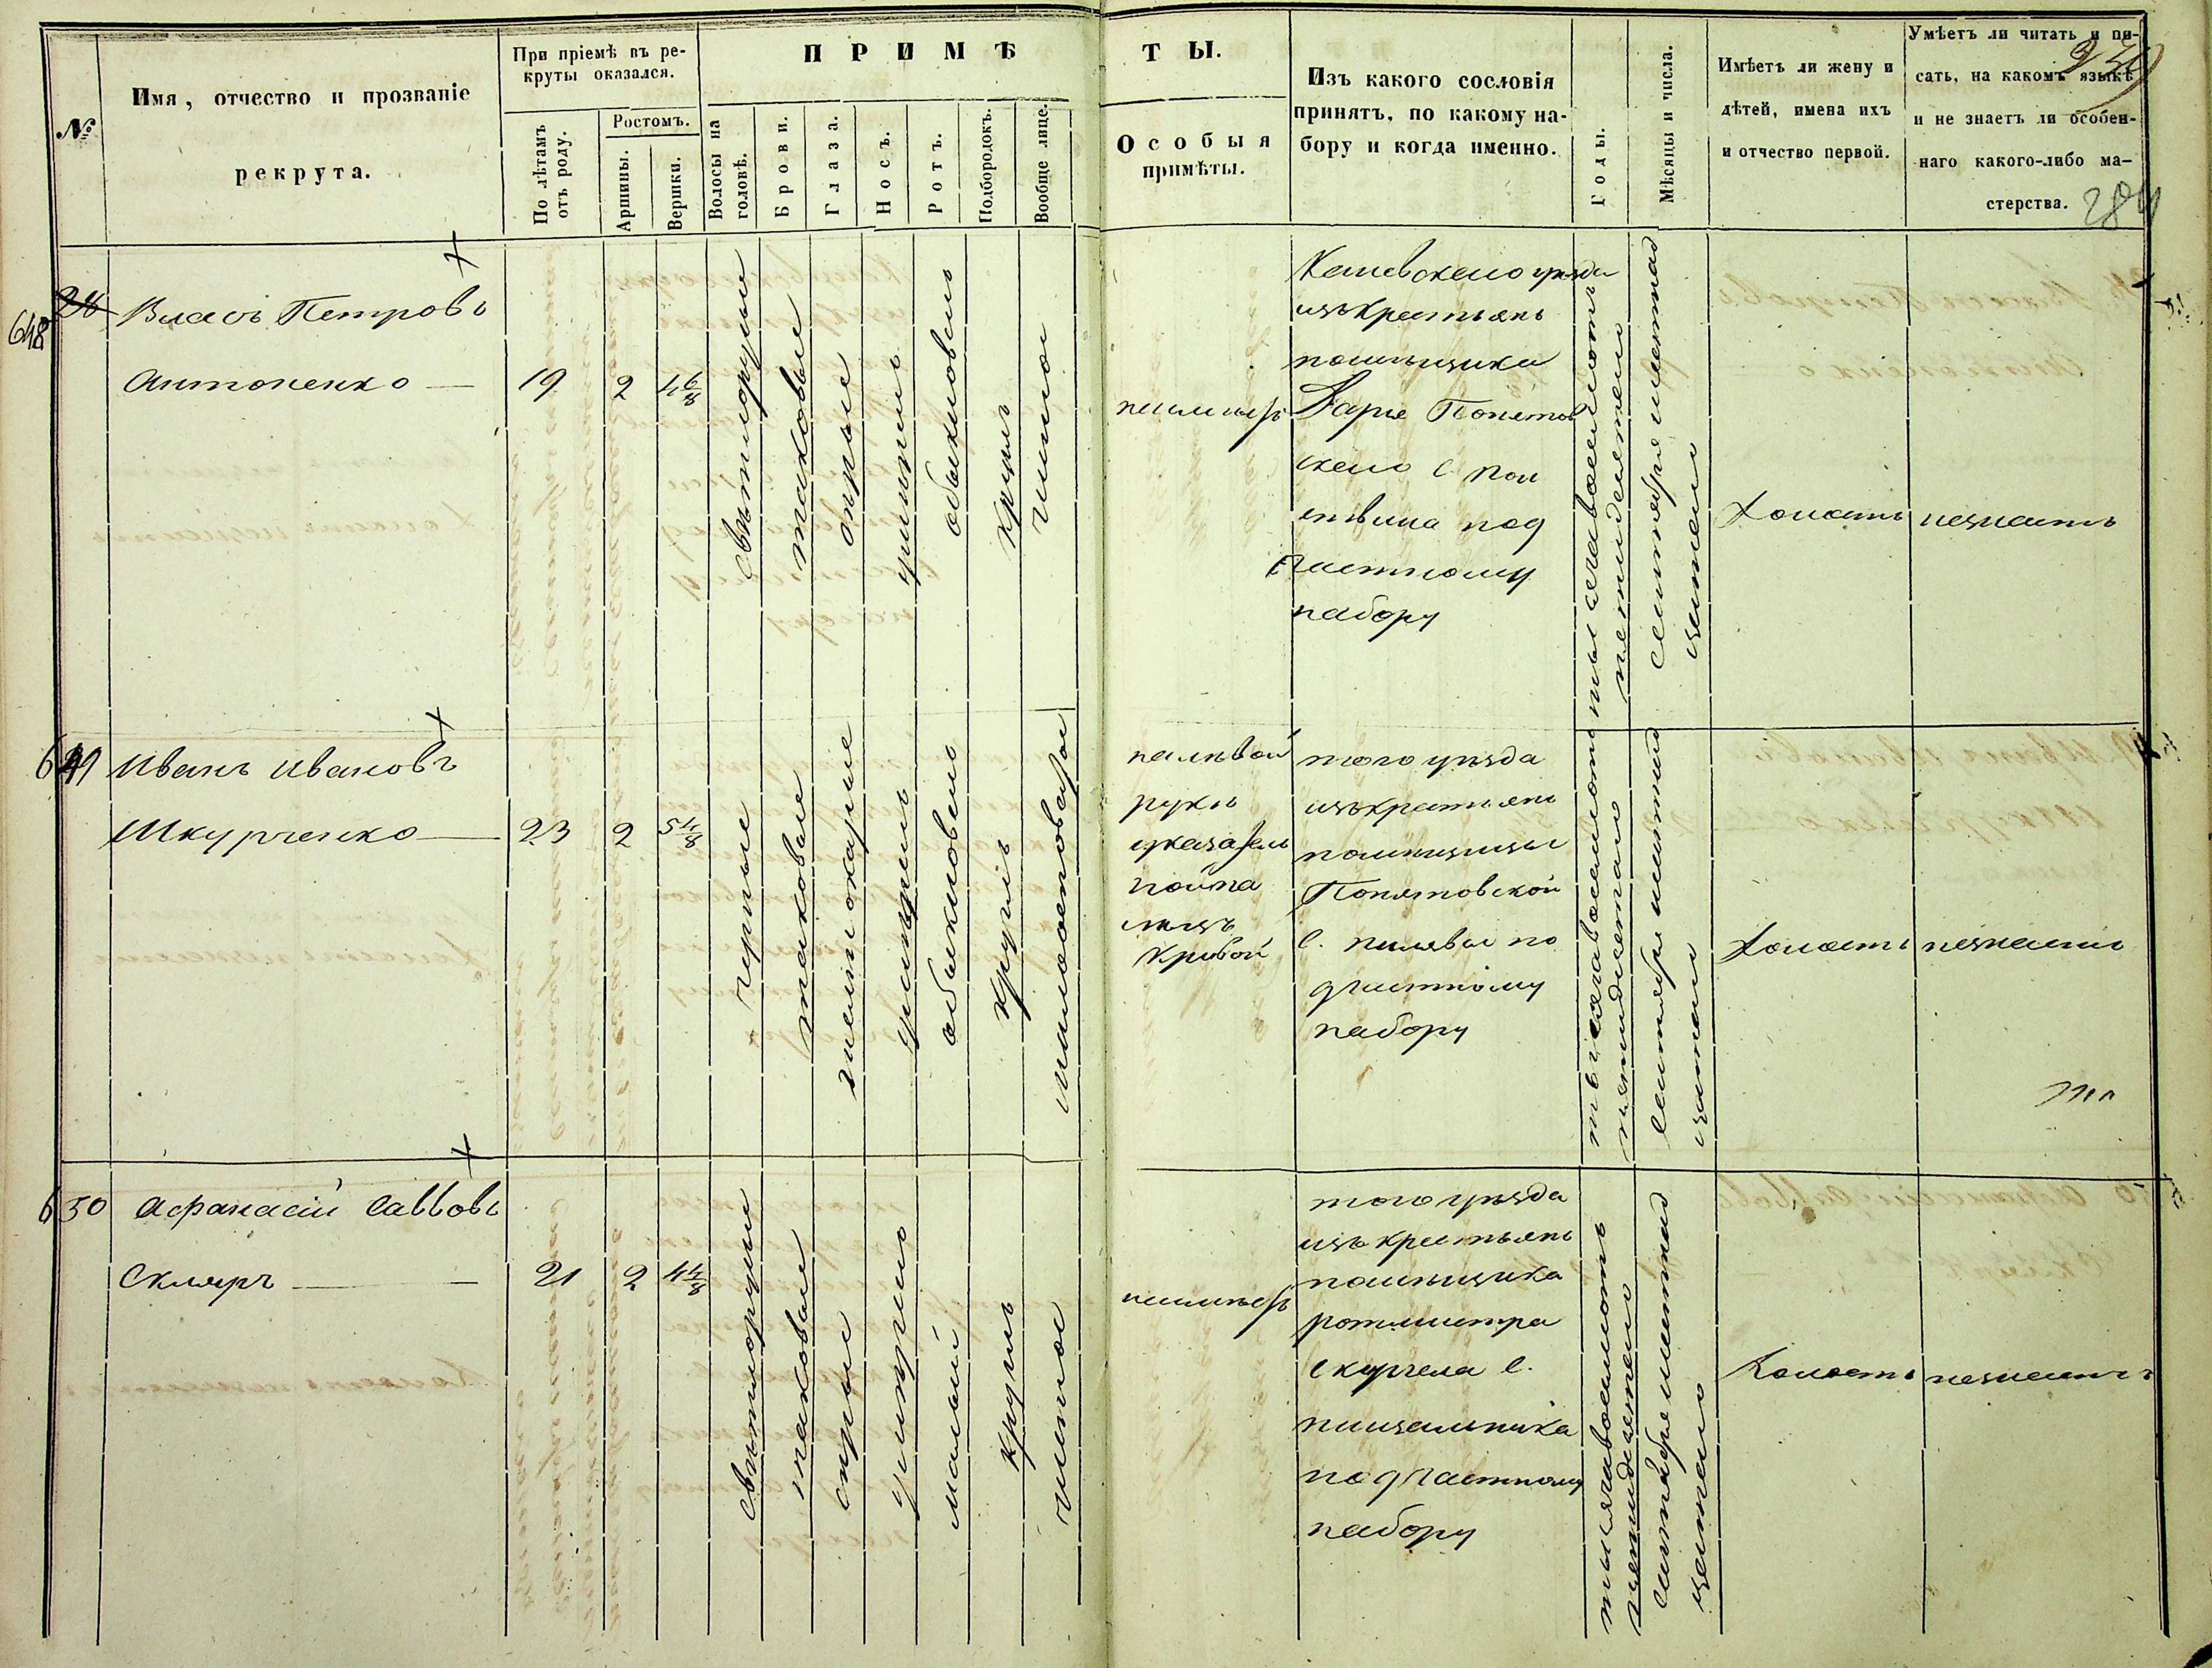 №
Имя, отчество и прозваніе
рекрута.
При пріемѣ въ ре-
круты оказался.
По лѣтамъ
отъ роду.
Ростомъ.
Аршины.
Вершки.
ПРИМѢ
Волосы на
головѣ.
Брови.
Глаза.
Носъ.
Ротъ.
Подбородокъ.
Вообще лице.
ТЫ.
Особыя
примѣты.
Изъ какого сословія
принятъ, по какому на-
бору и когда именно.
Годы.
Мѣсяцы и числа.
Имѣетъ ли жену и
дѣтей, имена ихъ
и отчество первой.
Умѣетъ ли читать и пи-
сать, на какомъ языкѣ
и не знаетъ ли особен-
наго какого-либо ма-
стерства.
284
648
28
Власъ Петровъ
Антоненко
19
2
4 6/8
свѣтлорусые
таковые
сѣрые
умѣренъ
обыкновенъ
круглъ
чистое
неимѣетъ
уѣзда
изъ крестьянъ
помѣщика
Понятов
скаго с.
под
частному
набору
тысяча восемьсотъ
пятидесятаго
сентября
Холостъ
незнаетъ
649
Иванъ Ивановъ
Шкурченко
23
2
5 4/8
черные
таковые
желтокарие
умѣренъ
обыкновенъ
круглъ
на лѣвой
рукѣ
указатель
ной па
лецъ
кривой
того уѣзда
изъ крестьянъ
помѣщицы
Понятовской
с. пилявы по
дчастному
набору
тысяча восемьсотъ
пятидесятаго
сентября
Холостъ
незнаетъ
650
Афанасій Саввовъ
Скляръ
21
2
4 4/8
свѣтлорусые
таковые
сѣрые
умѣренъ
малый
круглъ
чистое
неимѣетъ
того уѣзда
изъ крестьянъ
помѣщика
ротмистра
с.
пищальника
подчастному
набору
тысяча восемьсотъ
пятидесятаго
сентября
Холостъ
незнаетъ